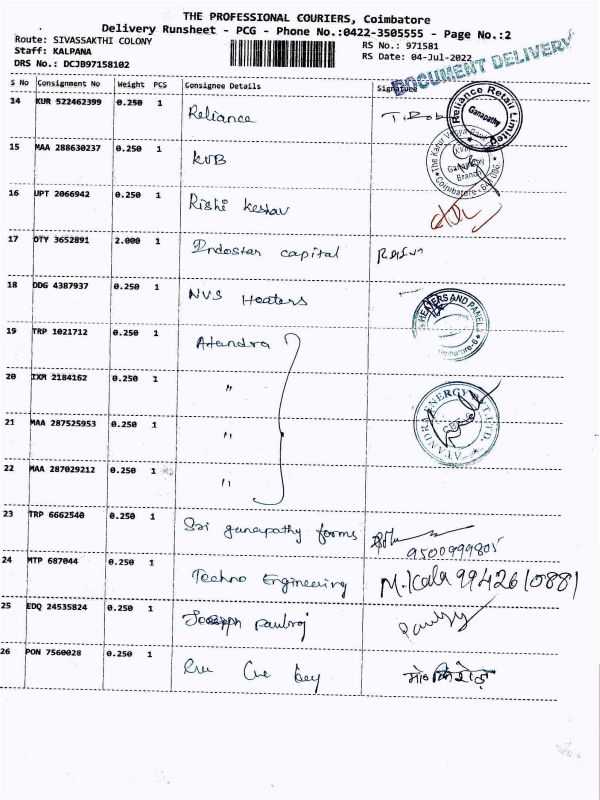 THE PROFESSIONAL COURIERS, Coimbatore
Delivery Runsheet - PCG - Phone No.:0422-3505555 - Page No.:2
Route: SIVASSAKTHI COLONY RS No.: 971581
Staff: KALPANA RS Date: 04-Jul-2022
DRS No.: DCJB97158102
DOCUMENT DELIVERY
S No Consignment No Weight PCS Consignee Details Signature
14 KUR 522462399 0.250 1 Reliance
Reliance Retail Limited
Ganapathy
15 MAA 288630237 0.250 1 KVB
The Karur Vysya Bank
Ganapathy
Branch
Coimbatore
16 UPT 2066942 0.250 1 Rishi
17 OTY 3652891 2.000 1 Indostar capital
18 DDG 4387937 0.250 1 NVS Heaters
HEATERS AND PANELS
Coimbatore-6
19 TRP 1021712 0.250 1 Atandra
20 IXM 2184162 0.250 1 "
ATANDRA ENERGY PVT. LTD.
21 MAA 287525953 0.250 1 "
22 MAA 287029212 0.250 1 "
23 TRP 6662540 0.250 1 Sri ganapathy forms
9500999805
24 MTP 687044 0.250 1 Techno Engineering M. Kala 9942610881
25 EDQ 24535824 0.250 1 Joseph Paulraj
26 PON 7560028 0.250 1